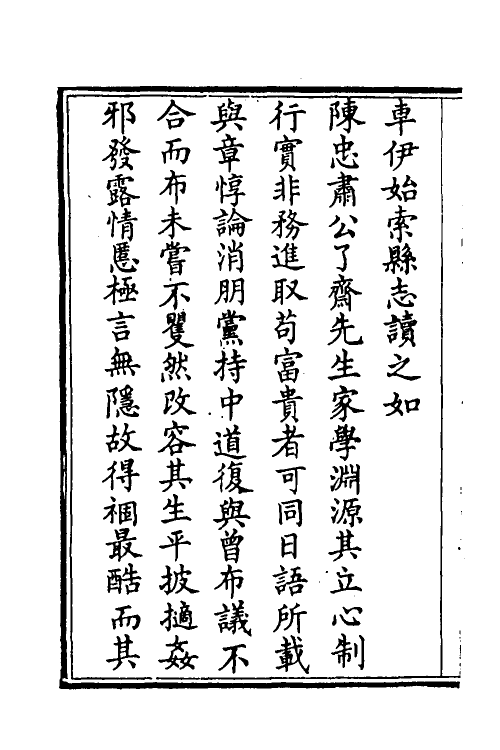 車伊始索縣志讀之如
陳忠肅公了齋先生家學淵源其立心制
行實非務進取苟富貴者可同日語所載
與章惇論消朋黨持中道復與曾布議不
合而布未嘗不矍然改容其生平披擿姦
邪發露情慝極言無隱故得禍最酷而其